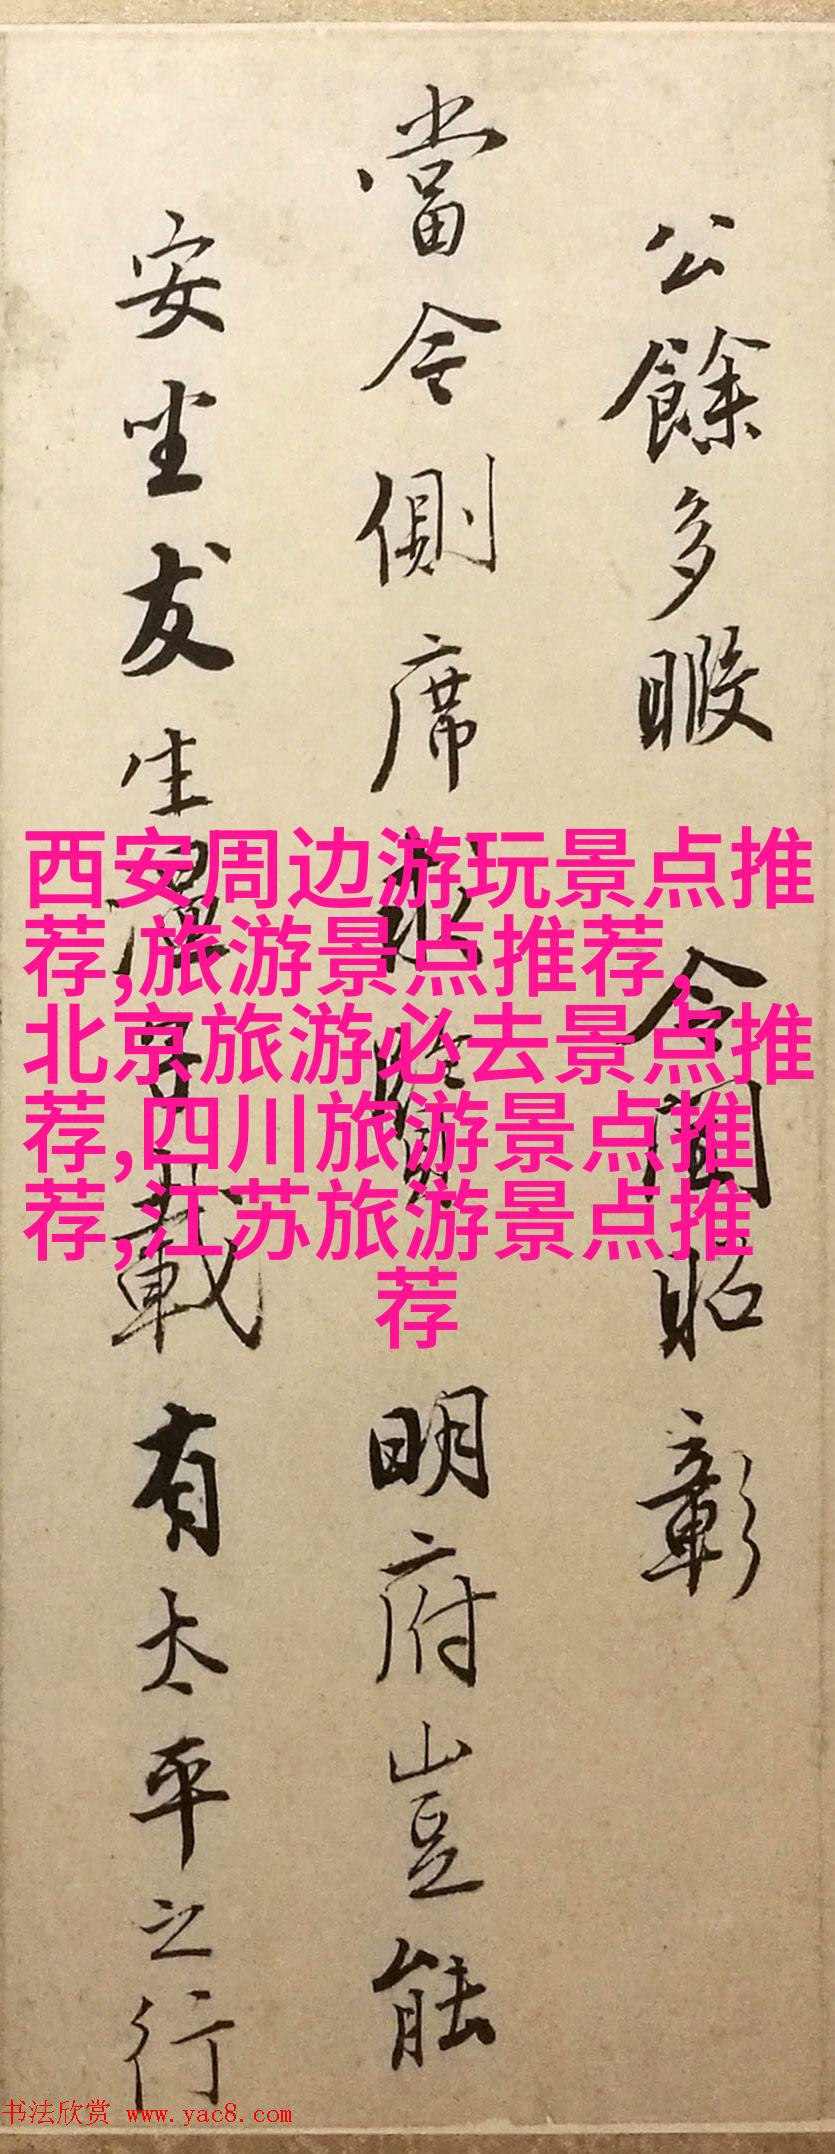 公餘多暇 令聞昭彰
當今側席求賢明府豈能
安坐友生載有太平之行
西安周边游玩景点推
荐,旅游景点推荐,
北京旅游必去景点推
荐,四川旅游景点推
荐,江苏旅游景点推
荐
书法欣赏 www.yac8.com